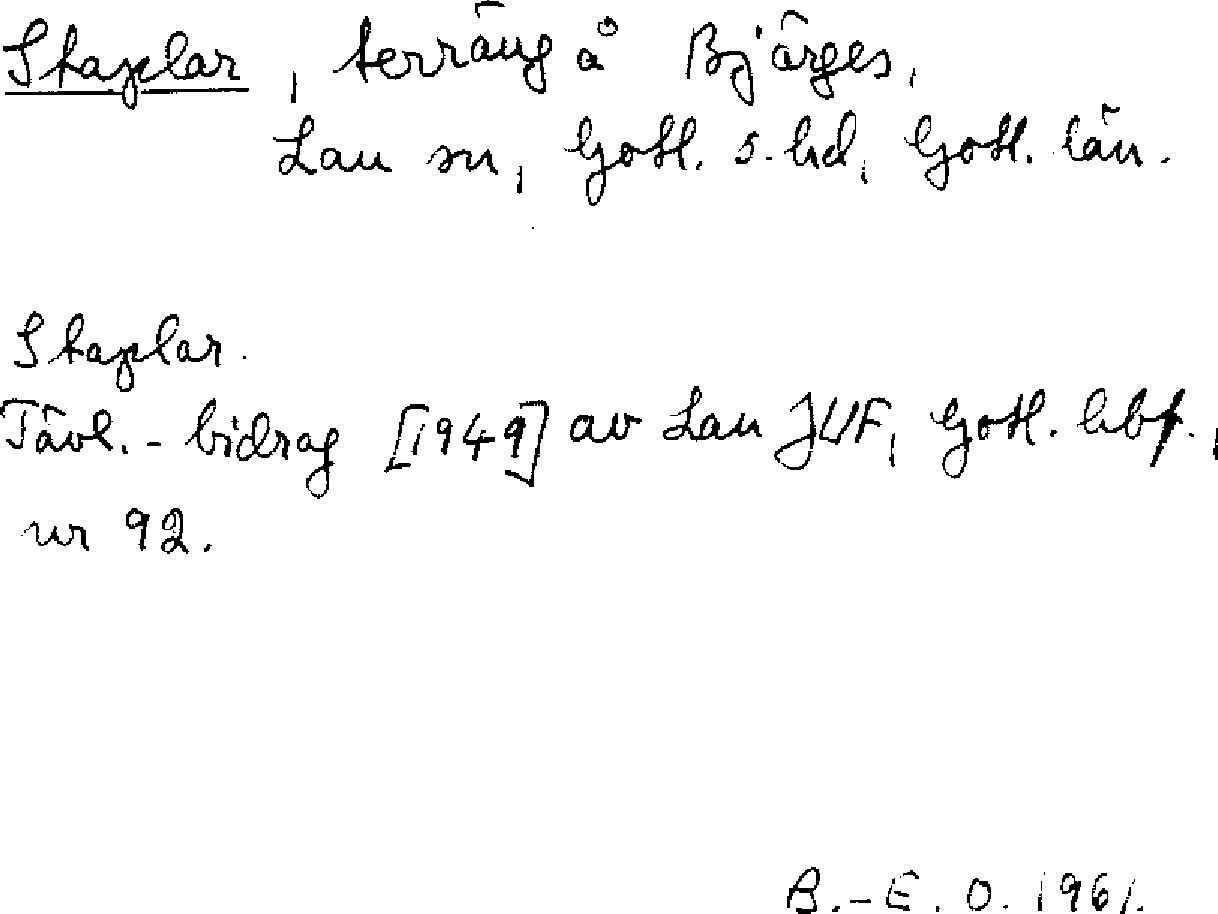 Staplar, terräng å Bjärges,
Lau sn, Gotl. s. hd, Gotl. län.
Staplar.
Tävl.-bidrag [1949] av Lau JUF, Gotl. hbf.,
nr 92.
B.-E. O. 1961.